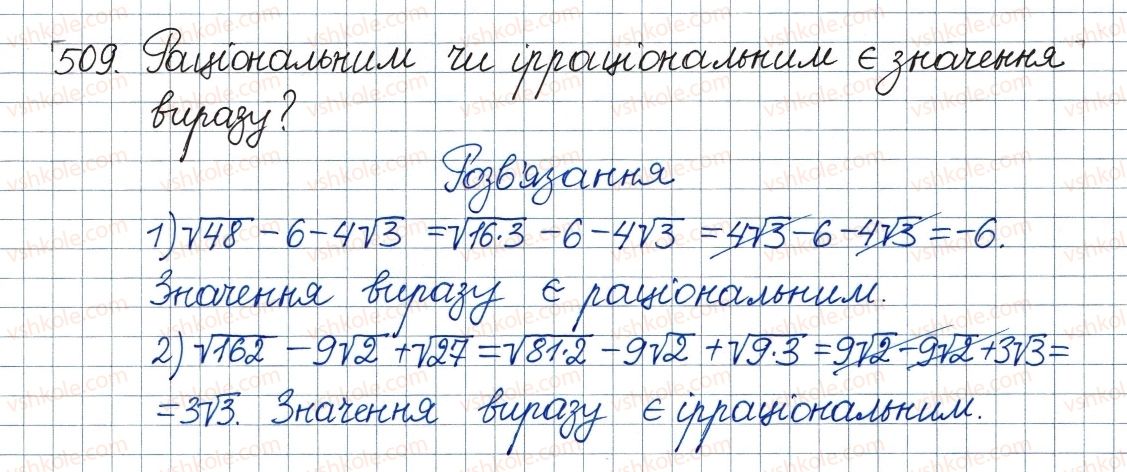 509. Раціональним чи ірраціональним є значення
виразу?
Розв'язання
1) √48 - 6 - 4√3 = √16·3 - 6 - 4√3 = 4√3 - 6 - 4√3 = -6.
Значення виразу є раціональним.
2) √162 - 9√2 + √27 = √81·2 - 9√2 + √9·3 = 9√2 - 9√2 + 3√3 =
= 3√3. Значення виразу є ірраціональним.